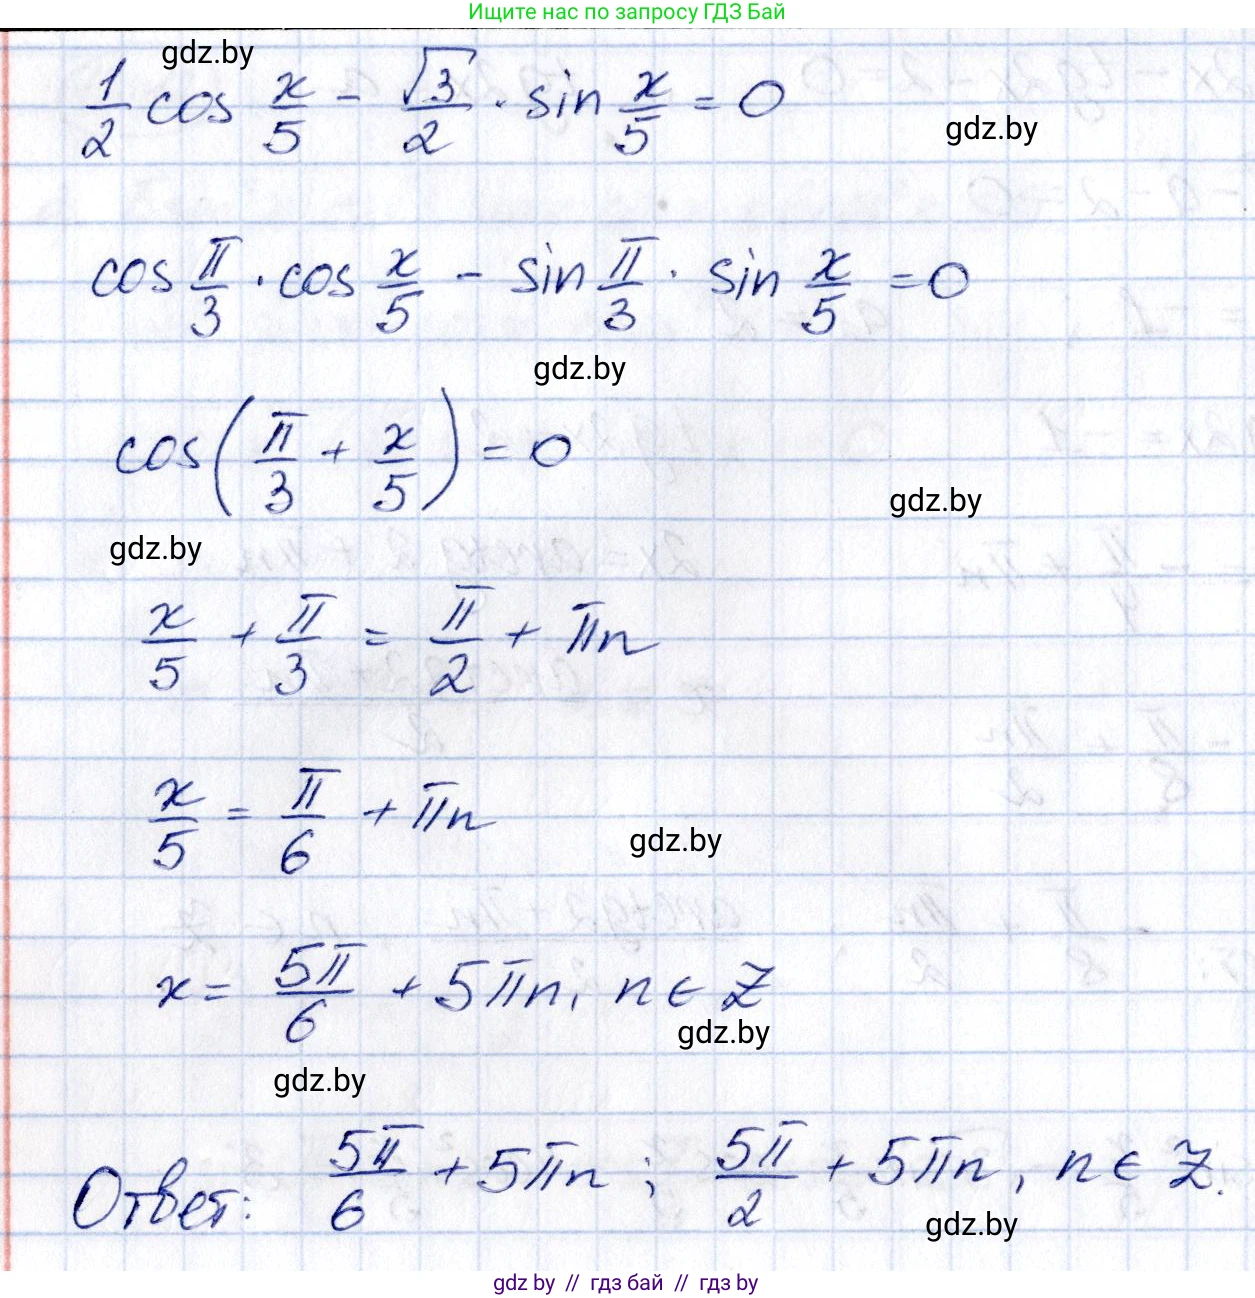 Ищите нас по запросу ГДЗ Бай
gdz.by
1/2 cos x/5 - √3/2 · sin x/5 = 0
gdz.by
cos π/3 · cos x/5 - sin π/3 · sin x/5 = 0
gdz.by
cos(π/3 + x/5) = 0
gdz.by
gdz.by
x/5 + π/3 = π/2 + πn
x/5 = π/6 + πn
gdz.by
x = 5π/6 + 5πn, n ∈ Z
gdz.by
gdz.by
Ответ: 5π/6 + 5πn ; 5π/2 + 5πn, n ∈ Z.
gdz.by
gdz by // гдз бай // гдз by